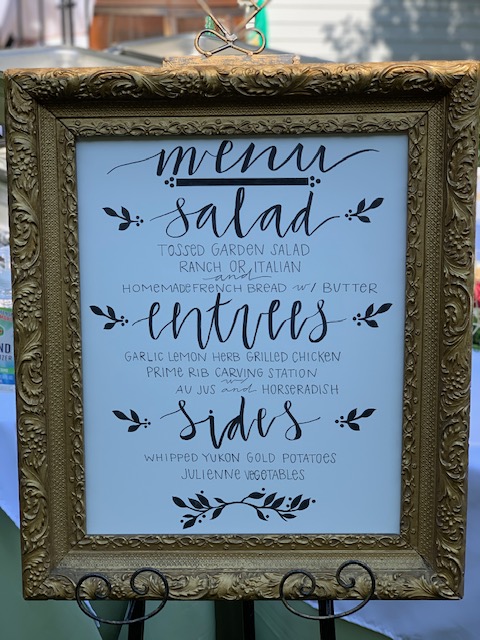 menu
salad
TOSSED GARDEN SALAD
RANCH OR ITALIAN
and
HOMEMADE FRENCH BREAD w/ BUTTER
entrees
GARLIC LEMON HERB GRILLED CHICKEN
PRIME RIB CARVING STATION
w/
AU JUS and HORSERADISH
sides
WHIPPED YUKON GOLD POTATOES
JULIENNE VEGETABLES